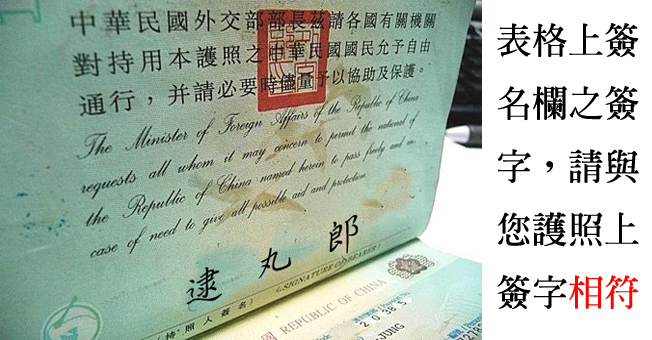 中華民國外交部部長茲請各國有關機關
對持用本護照之中華民國國民允予自由
通行，并請必要時儘量予以協助及保護。
The Minister of Foreign Affairs of the Republic of China
requests all whom it may concern to permit the national of
the Republic of China named herein to pass freely and in
case of need to give all possible aid and protection.
逮丸郎
(持照人簽名)
(SIGNATURE OF BEARER)
REPUBLIC OF CHINA
表格上簽
名欄之簽
字，請與
您護照上
簽字相符